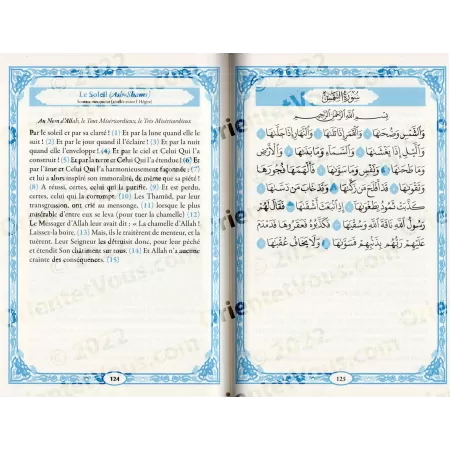 Le Soleil (Ash-Shams)
Au Nom d'Allah, le Tout Miséricordieux, le Très Miséricordieux
Par le soleil et par sa clarté ! (1) Et par la lune quand elle le
suit ! (2) Et par le jour quand il l'éclaire ! (3) Et par la nuit
quand elle l'enveloppe ! (4) Et par le ciel et Celui Qui l'a
construit ! (5) Et par la terre et Celui Qui l'a étendue ! (6) Et
par l'âme et Celui Qui l'a harmonieusement façonnée ; (7)
et lui a alors inspiré son immoralité, de même que sa piété !
(8) A réussi, certes, celui qui la purifie. (9) Et est perdu,
certes, celui qui la corrompt. (10) Les Thamûd, par leur
transgression, ont crié au mensonge, lorsque le plus
misérable d'entre eux se leva (pour tuer la chamelle) (12)
Le Messager d'Allah leur avait dit : « La chamelle d'Allah !
Laissez-la boire. (13) Mais, ils le traitèrent de menteur, et la
tuèrent. Leur Seigneur les détruisit donc, pour leur péché
et étendit Son châtiment sur tous. (14) Et Allah n'a aucune
crainte des conséquences. (15)
124
سورة الشمس
بسم الله الرحمن الرحيم
وَالشَّمْسِ وَضُحَاهَا وَالْقَمَرِ إِذَا تَلَاهَا وَالنَّهَارِ إِذَا جَلَّاهَا
وَاللَّيْلِ إِذَا يَغْشَاهَا وَالسَّمَاءِ وَمَا بَنَاهَا وَالْأَرْضِ
وَمَا طَحَاهَا وَنَفْسٍ وَمَا سَوَّاهَا فَأَلْهَمَهَا فُجُورَهَا
وَتَقْوَاهَا قَدْ أَفْلَحَ مَن زَكَّاهَا وَقَدْ خَابَ مَن دَسَّاهَا
كَذَّبَتْ ثَمُودُ بِطَغْوَاهَا إِذِ انبَعَثَ أَشْقَاهَا فَقَالَ لَهُمْ
رَسُولُ اللَّهِ نَاقَةَ اللَّهِ وَسُقْيَاهَا فَكَذَّبُوهُ فَعَقَرُوهَا فَدَمْدَمَ
عَلَيْهِمْ رَبُّهُم بِذَنبِهِمْ فَسَوَّاهَا وَلَا يَخَافُ عُقْبَاهَا
125
© 2022
OrientetVous.com